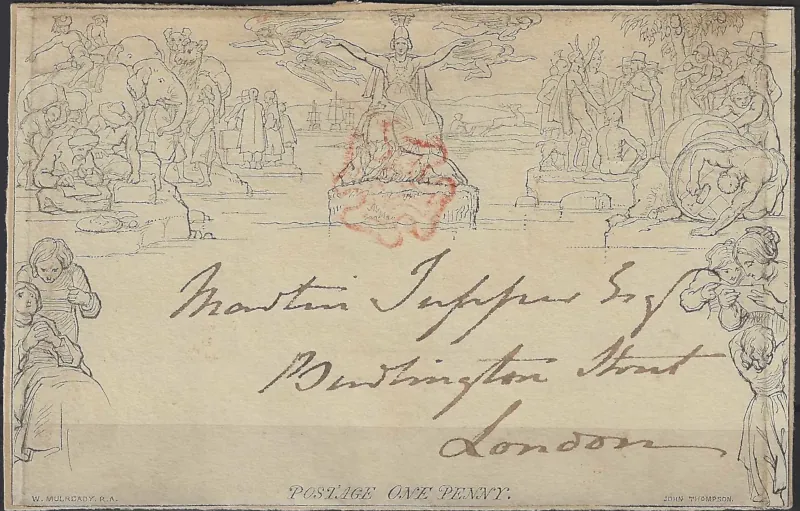 Martin Tupper Esq
Burlington Street
London
W. MULREADY, R.A.
POSTAGE ONE PENNY.
JOHN THOMPSON.